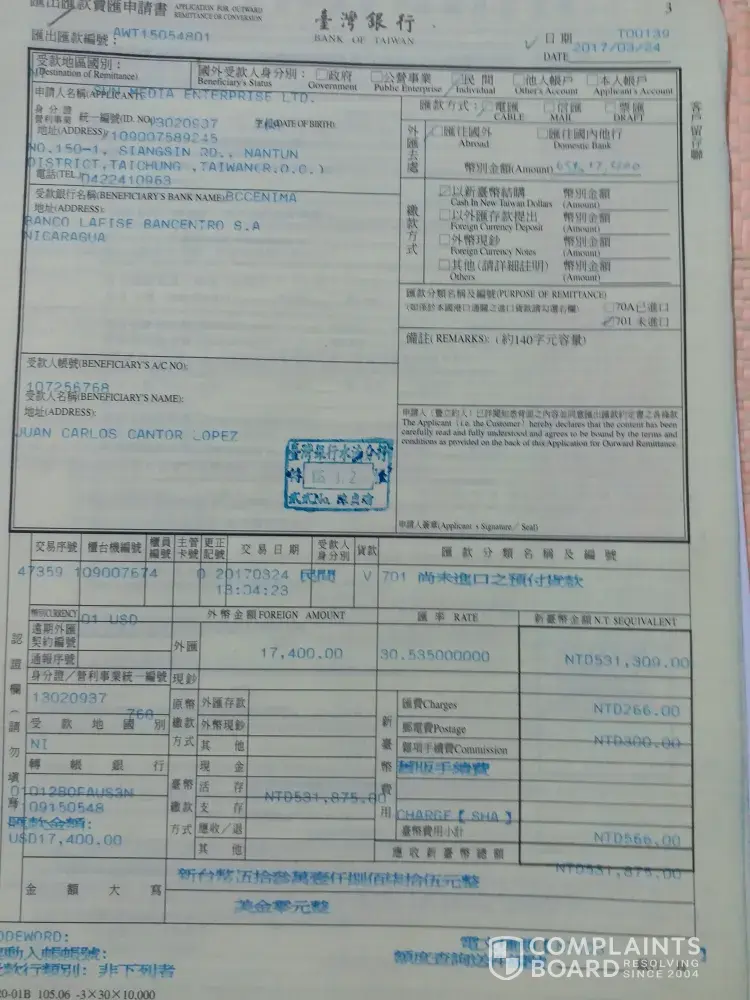 匯出匯款賣匯申請書 APPLICATION FOR OUTWARD REMITTANCE OR CONVERSION
3
臺灣銀行
BANK OF TAIWAN
匯出匯款編號: AWT15054801
T00139
日期
DATE 2017/03/24
受款地區國別:
(Destination of Remittance)
國外受款人身分別: 政府 公營事業 民間 他人帳戶 本人帳戶
Beneficiary's Status Government Public Enterprise Individual Other's Account Applicant's Account
申請人名稱(APPLICANT) MEDIA ENTERPRISE LTD.
身分證
營利事業 統一編號(ID. NO) 13020937 (DATE OF BIRTH)
地址(ADDRESS) 109007589245
NO.150-1, SIANGSIN RD., NANTUN
DISTRICT,TAICHUNG ,TAIWAN(R.O.C.)
電話(TEL) 0422410963
匯款方式: 電匯 信匯 票匯
CABLE MAIL DRAFT
外匯去處
匯往國外 匯往國內他行
Abroad Domestic Bank
幣別金額(Amount)
客戶留存聯
受款銀行名稱(BENEFICIARY'S BANK NAME) BCCENIMA
地址(ADDRESS):
BANCO LAFISE BANCENTRO S.A
NICARAGUA
繳款方式
以新臺幣結購 幣別金額
Cash in New Taiwan Dollars (Amount)
以外匯存款提出 幣別金額
Foreign Currency Deposit (Amount)
外幣現鈔 幣別金額
Foreign Currency Notes (Amount)
其他(請詳細註明) 幣別金額
Others (Amount)
匯款分類名稱及編號(PURPOSE OF REMITTANCE)
70A已進口
701 未進口
備註(REMARKS): (約140字元容量)
受款人帳號(BENEFICIARY'S A/C NO):
107256768
受款人名稱(BENEFICIARY'S NAME):
地址(ADDRESS):
JUAN CARLOS CANTOR LOPEZ
The Applicant (i.e. the Customer) hereby declares that the content has been
carefully read and fully understood and agrees to be bound by the terms and
conditions as provided on the back of this Application for Outward Remittance.
臺灣銀行水湳分行
申請人簽章(Applicant's Signature/Seal)
交易序號 櫃台機編號 櫃員編號 主管卡號 更正記號 交易日期 受款人身分別 貨款 匯款分類名稱及編號
47359 109007674 0 20170324 民間 V 701 尚未進口之預付貨款
13:04:23
幣別CURRENCY 01 USD
外幣金額FOREIGN AMOUNT 匯率 RATE 新臺幣金額N.T.$EQUIVALENT
遠期外匯
契約編號
通報序號
外匯 17,400.00 30.535000000 NTD531,309.00
身分證/營利事業統一編號
現鈔
13020937
768
受款地區國別
NI
轉帳銀行
原幣繳款方式
外匯存款
外幣現鈔
其他
臺幣繳款方式
現金
活存 NTD531,875.00
支存
應收/退
其他
新臺幣費用
匯費Charges NTD266.00
郵電費Postage NTD300.00
個項手續費Commission
國版手續費
CHARGE【 SHA 】
臺幣費用小計 NTD566.00
應收新臺幣總額 NTD531,875.00
認證欄(請勿填寫)
匯款金額:
USD17,400.00
金額大寫
新台幣伍拾參萬壹仟捌佰柒拾伍元整
美金零元整
CODEWORD:
款行類別: 非下列者
20-01B 105.06 -3×30×10,000
COMPLAINTS
BOARD
RESOLVING
SINCE 2004